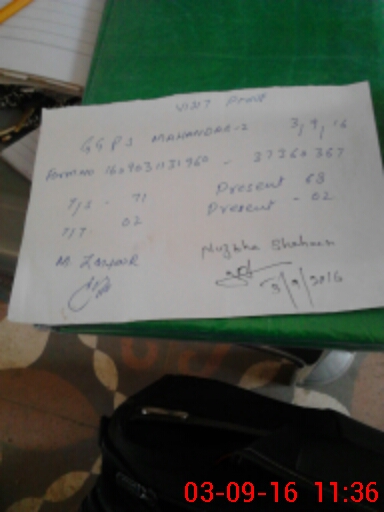 VISIT Proof
GGPS MAHANDAR-2 3/9/16
Form no 1609031131960 - 37360367
T/S - 71 Present 68
T/T - 02 Present - 02
M. ZAHOOR Nuzhha Shaheen
3/9/2016
03-09-16 11:36